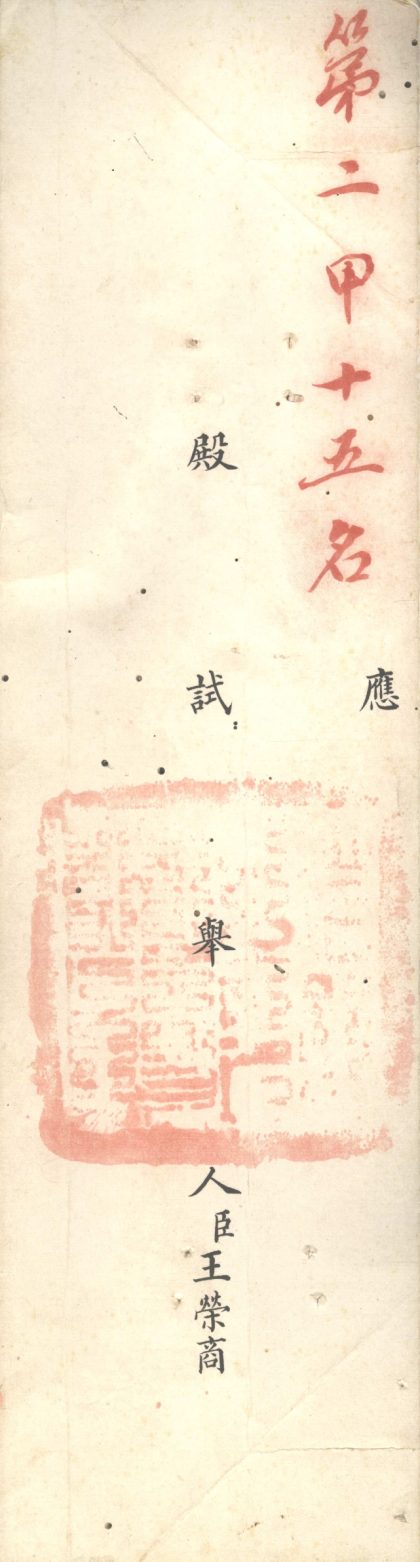 第二甲十五名
應
殿試舉人臣王榮商